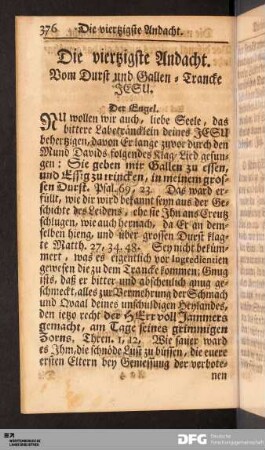 376 Die viertzigste Andacht.
Die viertzigste Andacht.
Vom Durst und Gallen-Trancke
JESU.
Der Engel.
NU wollen wir auch, liebe Seele, das
bittere Labeträncklein deines JESU
behertzigen, davon Er lange zuvor durch den
Mund Davids folgendes Klag-Lied gesun-
gen: Sie geben mir Gallen zu essen,
und Essig zu trincken, in meinen gros-
sen Durst. Psal. 69, 23. Das ward er-
füllt, wie dir wird bekannt seyn aus der Ge-
schichte des Leidens, ehe sie Ihn ans Creutz
schlugen, wie auch hernach, da Er an dem-
selben hieng, und über grossen Durst klag-
te Matth. 27, 34. 48. Sey nicht beküm-
mert, was es eigentlich vor Ingredientien
gewesen die zu dem Trancke kommen; Gnug
ists, daß er bitter und abscheulich gnug ge-
schmeckt, alles zur Vermehrung der Schmach
und Qvaal deines unschuldigen Heylandes,
den jetzo recht der HErr voll Jammers
gemacht, am Tage seines grimmigen
Zorns, Thren. 1, 12. Wie sauer ward
es Ihm, die schnöde Lust zu büssen, die eure
ersten Eltern bey Geniessung der verbote-
nen
DFG